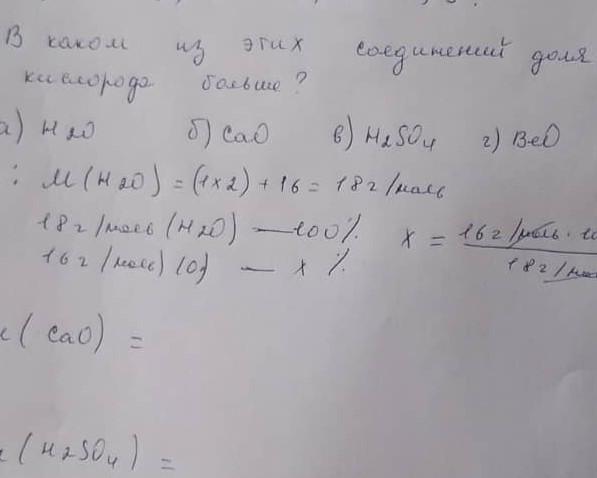 В каком из этих соединений доля
кислорода больше?
а) H2O б) CaO в) H2SO4 г) BeO
: M(H2O) = (1x2) + 16 = 18 г/моль
18 г/моль (H2O) — 100% x = 16 г/моль · 10
16 г/моль) (O) — x % 18 г/мо
(CaO) =
(H2SO4) =